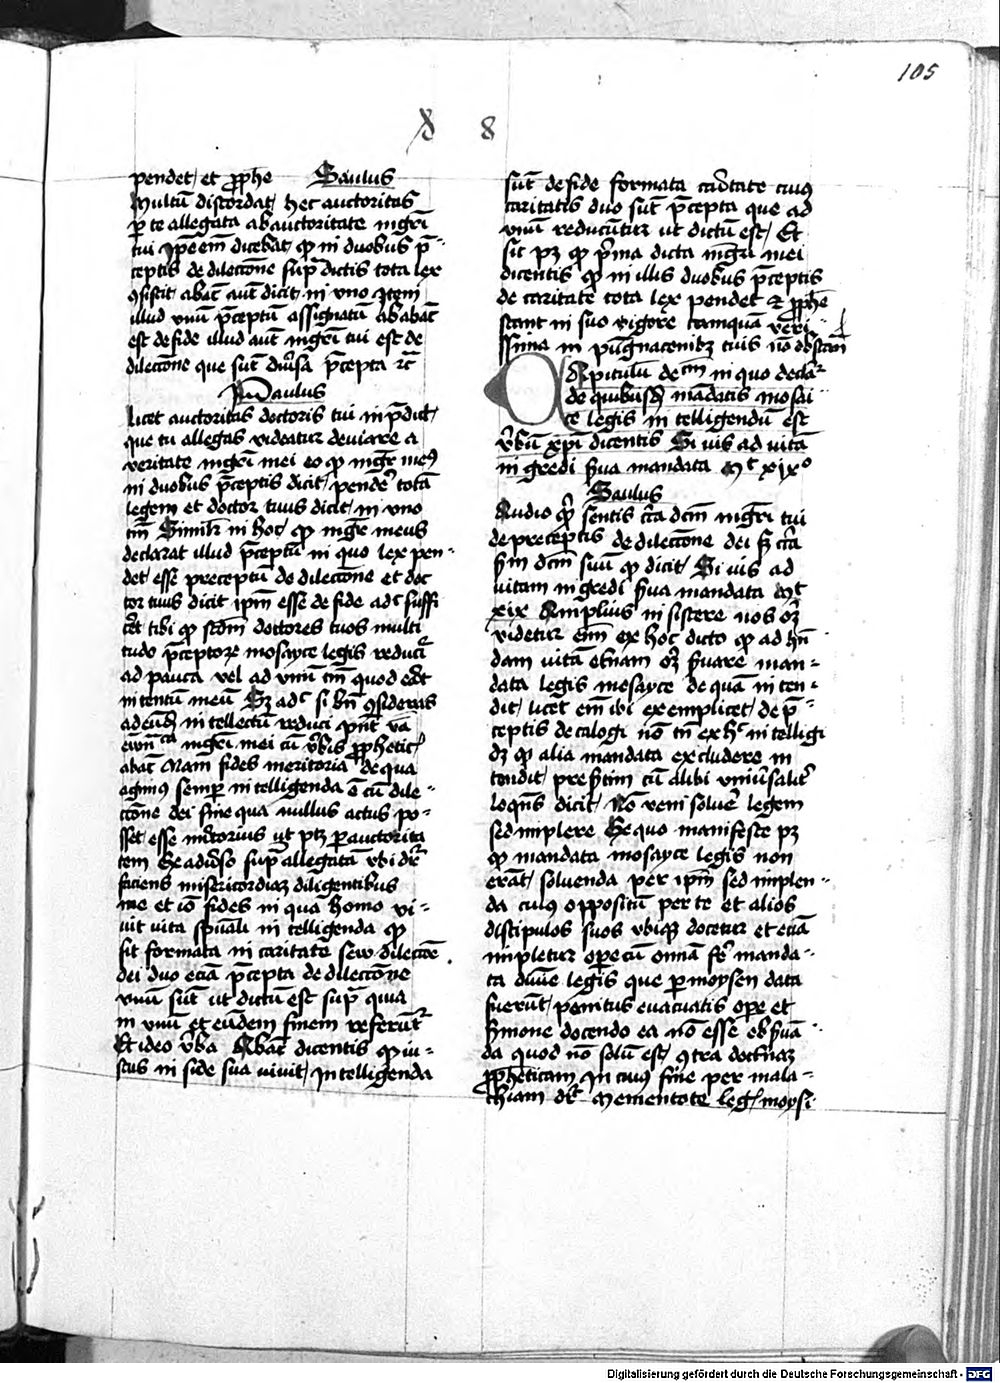 105
8 8
pendet et ꝓphe Saulus
Multū discordat hec auctoritas
ꝑ te allegata ab auctoritate mgr̄i
tui Ip̄e em̄ dicebat ꝙ in duobus p̄
ceptis de dilecc̄one sup̄dictis tota lex
ꝯsistit abac̄ aut̄ dicit in vno Item
illud vnū p̄ceptū assignatū ab abac̄
est de fide illud aut̄ mgr̄i tui est de
dilecc̄one que sūt diu̓sa p̄cepta ⁊c̄
Paulus
licet auctoritas doctoris tui in p̄dict̄
que tu allegas videatur deuiare a
veritate mgr̄i mei eo ꝙ mgr̄ meꝰ
in duobus p̄ceptis dicit pende̓ totā
legem et doctor tuus dicit in vno
tm̄ Simil̓r in hoc ꝙ mgr̄ meus
declarat illud p̄ceptū in quo lex pen-
det esse preceptū de dilecc̄one et doc
tor tuus dicit ip̄m esse de fide adc̄ suffi
c̓et tibi ꝙ scd̄m doctores tuos multi
tudo p̄ceptoꝝ mosayce legis reduci̓
ad pauca vel ad vnū tm̄ quod erat
intentū meū Sꝫ adc̄ si bn̄ ꝯsideras
ad eūdē intellectū reduci pn̄t v̓a
mgr̄i mei cū v̓bis ꝓphetic̄
abac̄ Nam fides meritoria de qua
agimus semꝑ intelligenda ē cū dile-
cc̄one dei sine qua nullus actus po-
sset esse m̓itorius ut ptꝫ ꝑ auctorita
tem Ex aduso sup̄ allegatā vbi dr̄
faciens misericordiaꝫ diligentibus
me et iō fides in qua homo vi-
uit vita sp̄uali intelligenda ꝙ
sit formata in caritate seu dilecc̄oē
dei duo ecīa p̄cepta de dilecc̄one
vnū sūt ut dictū est sup̄ quia
in vnū et eūdem finem referūt̓
Et ideo v̓ba Abac̄ dicentis ꝙ iu-
stus in fide sua viuit Intelligenda
sūt de fide formata caritate cuiꝰ
caritatis duo sūt p̄cepta que ad
vnū reducūtur ut dictū est Et
sic pꝫ ꝙ p̄ma dicta mgr̄i mei
dicentis ꝙ in illis duobus p̄ceptis
de caritate tota lex pendet ⁊ ꝓphē
stant in suo vigore tamquā veri-
ssima in pūgnacionibꝫ tuis nō obstan̄
Capitulū decm̄ in quo declar̓
de quibusdā mādatis mosai
ce legis intelligendū est
v̓bū xp̄i dicentis Si vis ad vitā
ingredi s̓ua mandata Mt xixo
Saulus
Audio qr̄ sentis cr̄a dcm̄ mgr̄i tui
de preceptis de dilecc̄one dei sꝫ cr̄a
s̓m dcm̄ suū ꝙ dicit Si vis ad
vitam ingredi s̓ua mandata Mt
xix Amplius insistere nos oꝫ
videtur em̄ ex hoc dicto ꝙ ad hn̄
dam vitā et̓nam oꝫ s̓uare man-
data legis mosayce de quā inten-
dit licet em̄ ibi exemplicet de p̄-
ceptis decalogi nō tn̄ ex hc̄ intelligi
dꝫ ꝙ alia mandata excludere in
tendit pres̓tim cū alibi vniu̓salit̓
loquēs dicit Nō veni solue̓ legem
sed implere Ex quo manifeste pꝫ
ꝙ mandata mosayce legis non
erāt soluenda per ip̄m sed implen-
da cuius oppositū per te et alios
discipulos suos vbiqꝫ docetur et ecīa
impletur ope cū om̄ia fe̓ manda-
ta diuīe legis que ꝑ moysen data
fuerūt penitus euacuatis ope et
s̓mone docendo ea nō esse obs̓uā-
da quod nō solū est ꝯtra doctrinaꝫ
ꝓpheticam In cuiꝰ fine per mala-
chiam dr̄ Mementote leg̓ moysi
Digitalisierung gefördert durch die Deutsche Forschungsgemeinschaft - DFG